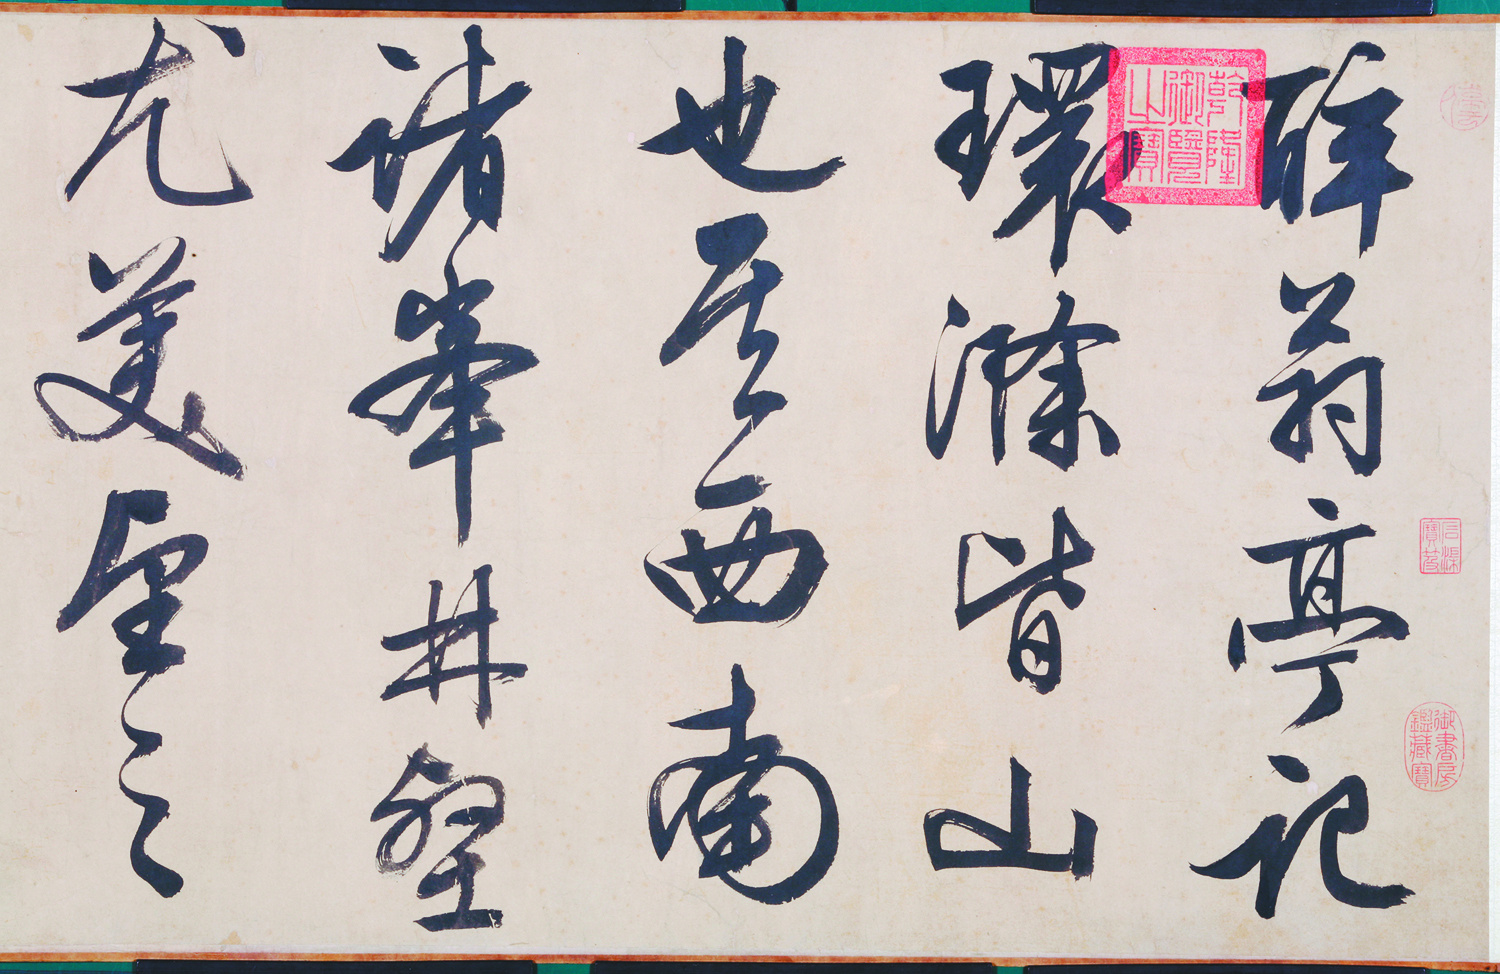 石渠
寶笈
御書房
鑑藏寶
醉翁亭記
乾隆
御覽
之寶
環滁皆山
也其西南
諸峯林壑
尤美望之